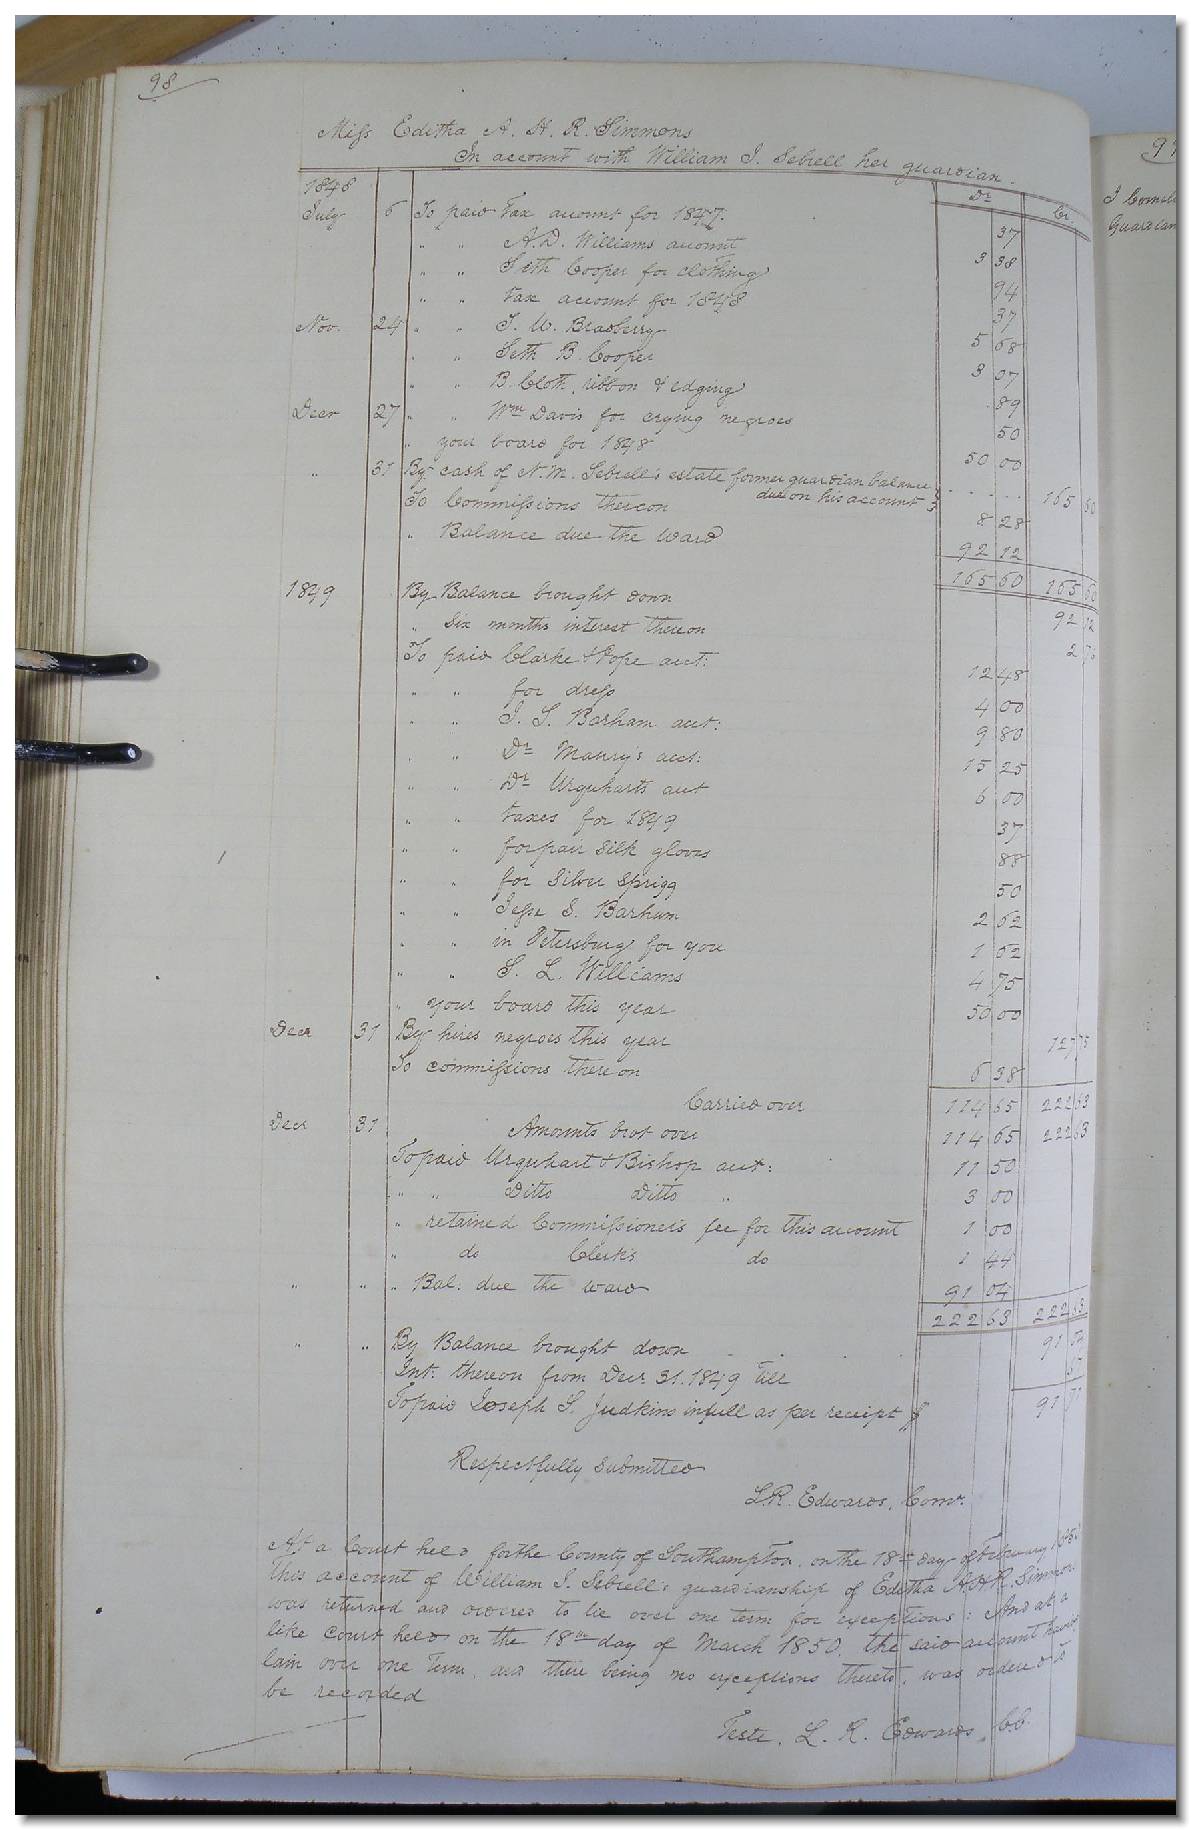 98
Miss Editha A. H. R. Simmons
In account with William J. Sebrell her guardian.
Dr. Cr.
1848
July 6 To paid tax account for 1847. 37
" " A. D. Williams account 3 38
" " Seth Cooper for clothing 94
" " tax account for 1848 37
Nov. 24 " " J. W. Bradberry 5 68
" " Seth B. Cooper 3 07
" " B. Cloth, ribbon & edging 89
Decr 27 " " Wm Davis for crying negroes 50
" your board for 1848 50 00
" 31 By cash of N. M. Sebrell's estate former guardian balance
due on his account 165 60
To Commissions thereon 8 28
" Balance due the Ward 92 12
165 60 165 60
1849 By Balance brought down 92 12
" Six months interest thereon 2 76
To paid Clarke & Pope acct: 12 48
" " for dress 4 00
" " J. S. Barham acct: 9 80
" " Dr Maury's acct: 15 25
" " Dr Urquharts acct 6 00
" " taxes for 1849 37
" " for pair silk gloves 88
" " for Silver Sprigg 50
" " Jesse S. Barham 2 62
" " in Petersburg for you 1 62
" " S. L. Williams 4 75
" your board this year 50 00
Decr 31 By hires negroes this year 127 75
To commissions thereon 6 38
Carried over 114 65 222 63
Decr 31 Amounts brot over 114 65 222 63
To paid Urquhart & Bishop acct: 11 50
" " Ditto Ditto " 3 00
" retained Commissioner's fee for this account 1 00
" do Clerk's do 1 44
" " " Bal: due the ward 91 04
222 63 222 63
" " By Balance brought down 91 04
Int. thereon from Decr. 31. 1849 till
To paid Joseph S. Judkins in full as per receipt $ 91 71
Respectfully submitted
L. R. Edwards, Comr.
At a Court held for the County of Southampton, on the 18th day of February 1850
This account of William J. Sebrell's guardianship of Editha A. H. R. Simmons
was returned and ordered to lie over one term for exceptions: And at a
like Court held on the 18th day of March 1850, the said account having
lain over one term, and there being no exceptions thereto, was ordered to
be recorded
Teste, L. R. Edwards, C.C.
97
Guardian